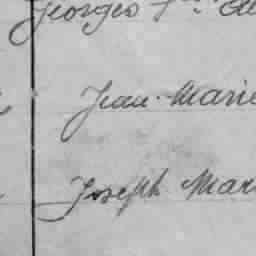 Georges
Jean-Marie
Joseph Mar